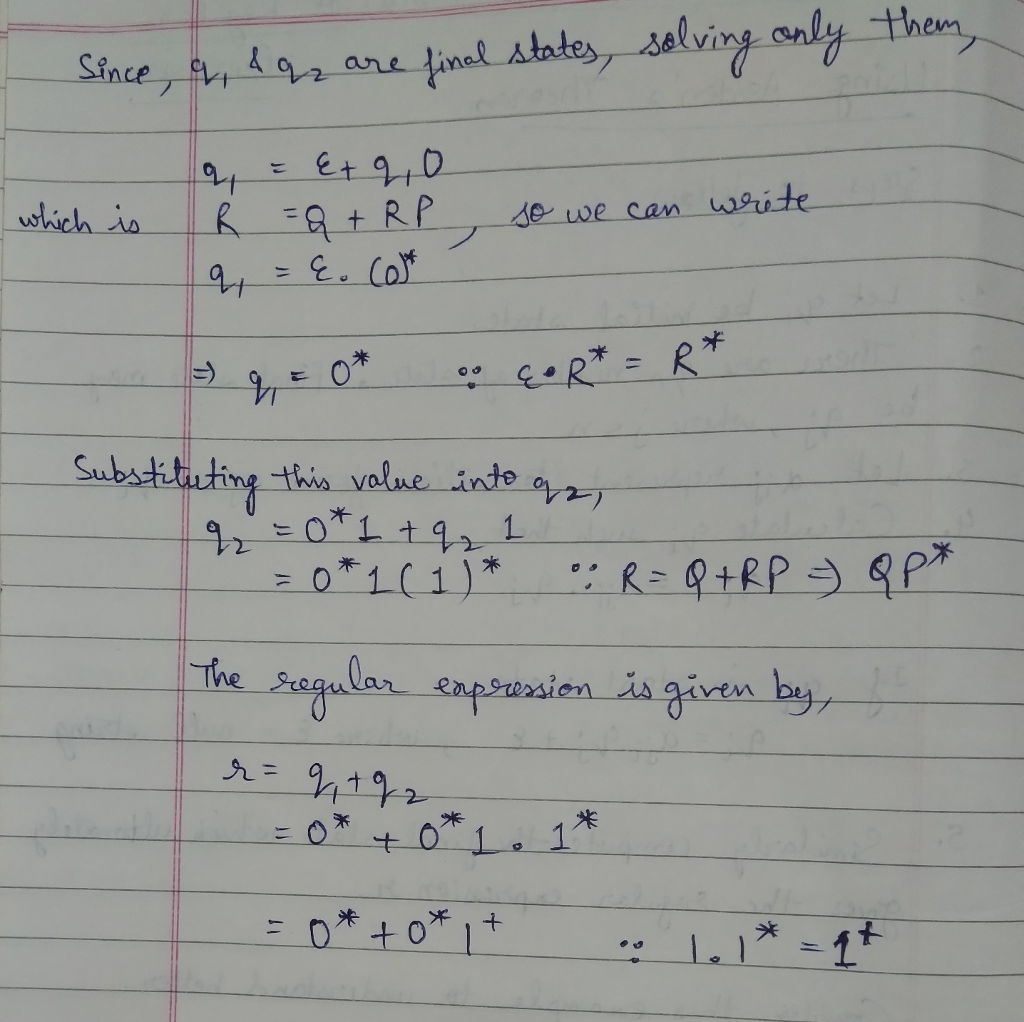 Since, q₁ & q₂ are final states, solving only them,
q₁ = ε + q₁0
which is R = Q + RP, so we can write
q₁ = ε. (0)*
⇒ q₁ = 0* ∵ ε•R* = R*
Substituting this value into q₂,
q₂ = 0*1 + q₂ 1
= 0*1(1)* ∵ R = Q+RP ⇒ QP*
The regular expression is given by,
r = q₁+q₂
= 0* + 0*1.1*
= 0* + 0*1⁺ ∵ 1.1* = 1⁺